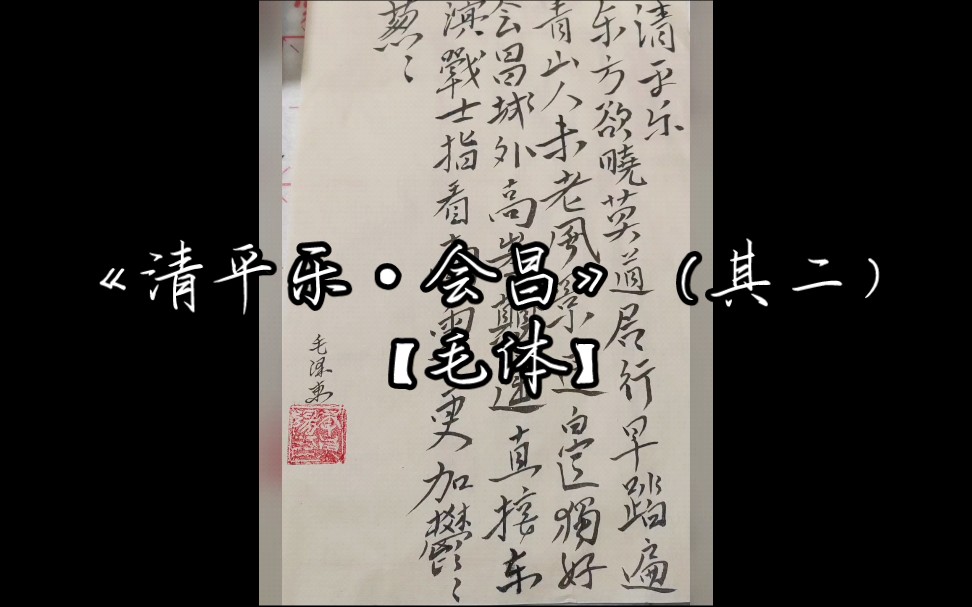 《清平乐·会昌》（其二）
【毛体】
清平乐
东方欲曉莫道君行早踏遍
青山人未老風景這邊獨好
会昌城外高峰顛連直接东
溟戰士指看南更加鬱〻
葱〻
毛泽东